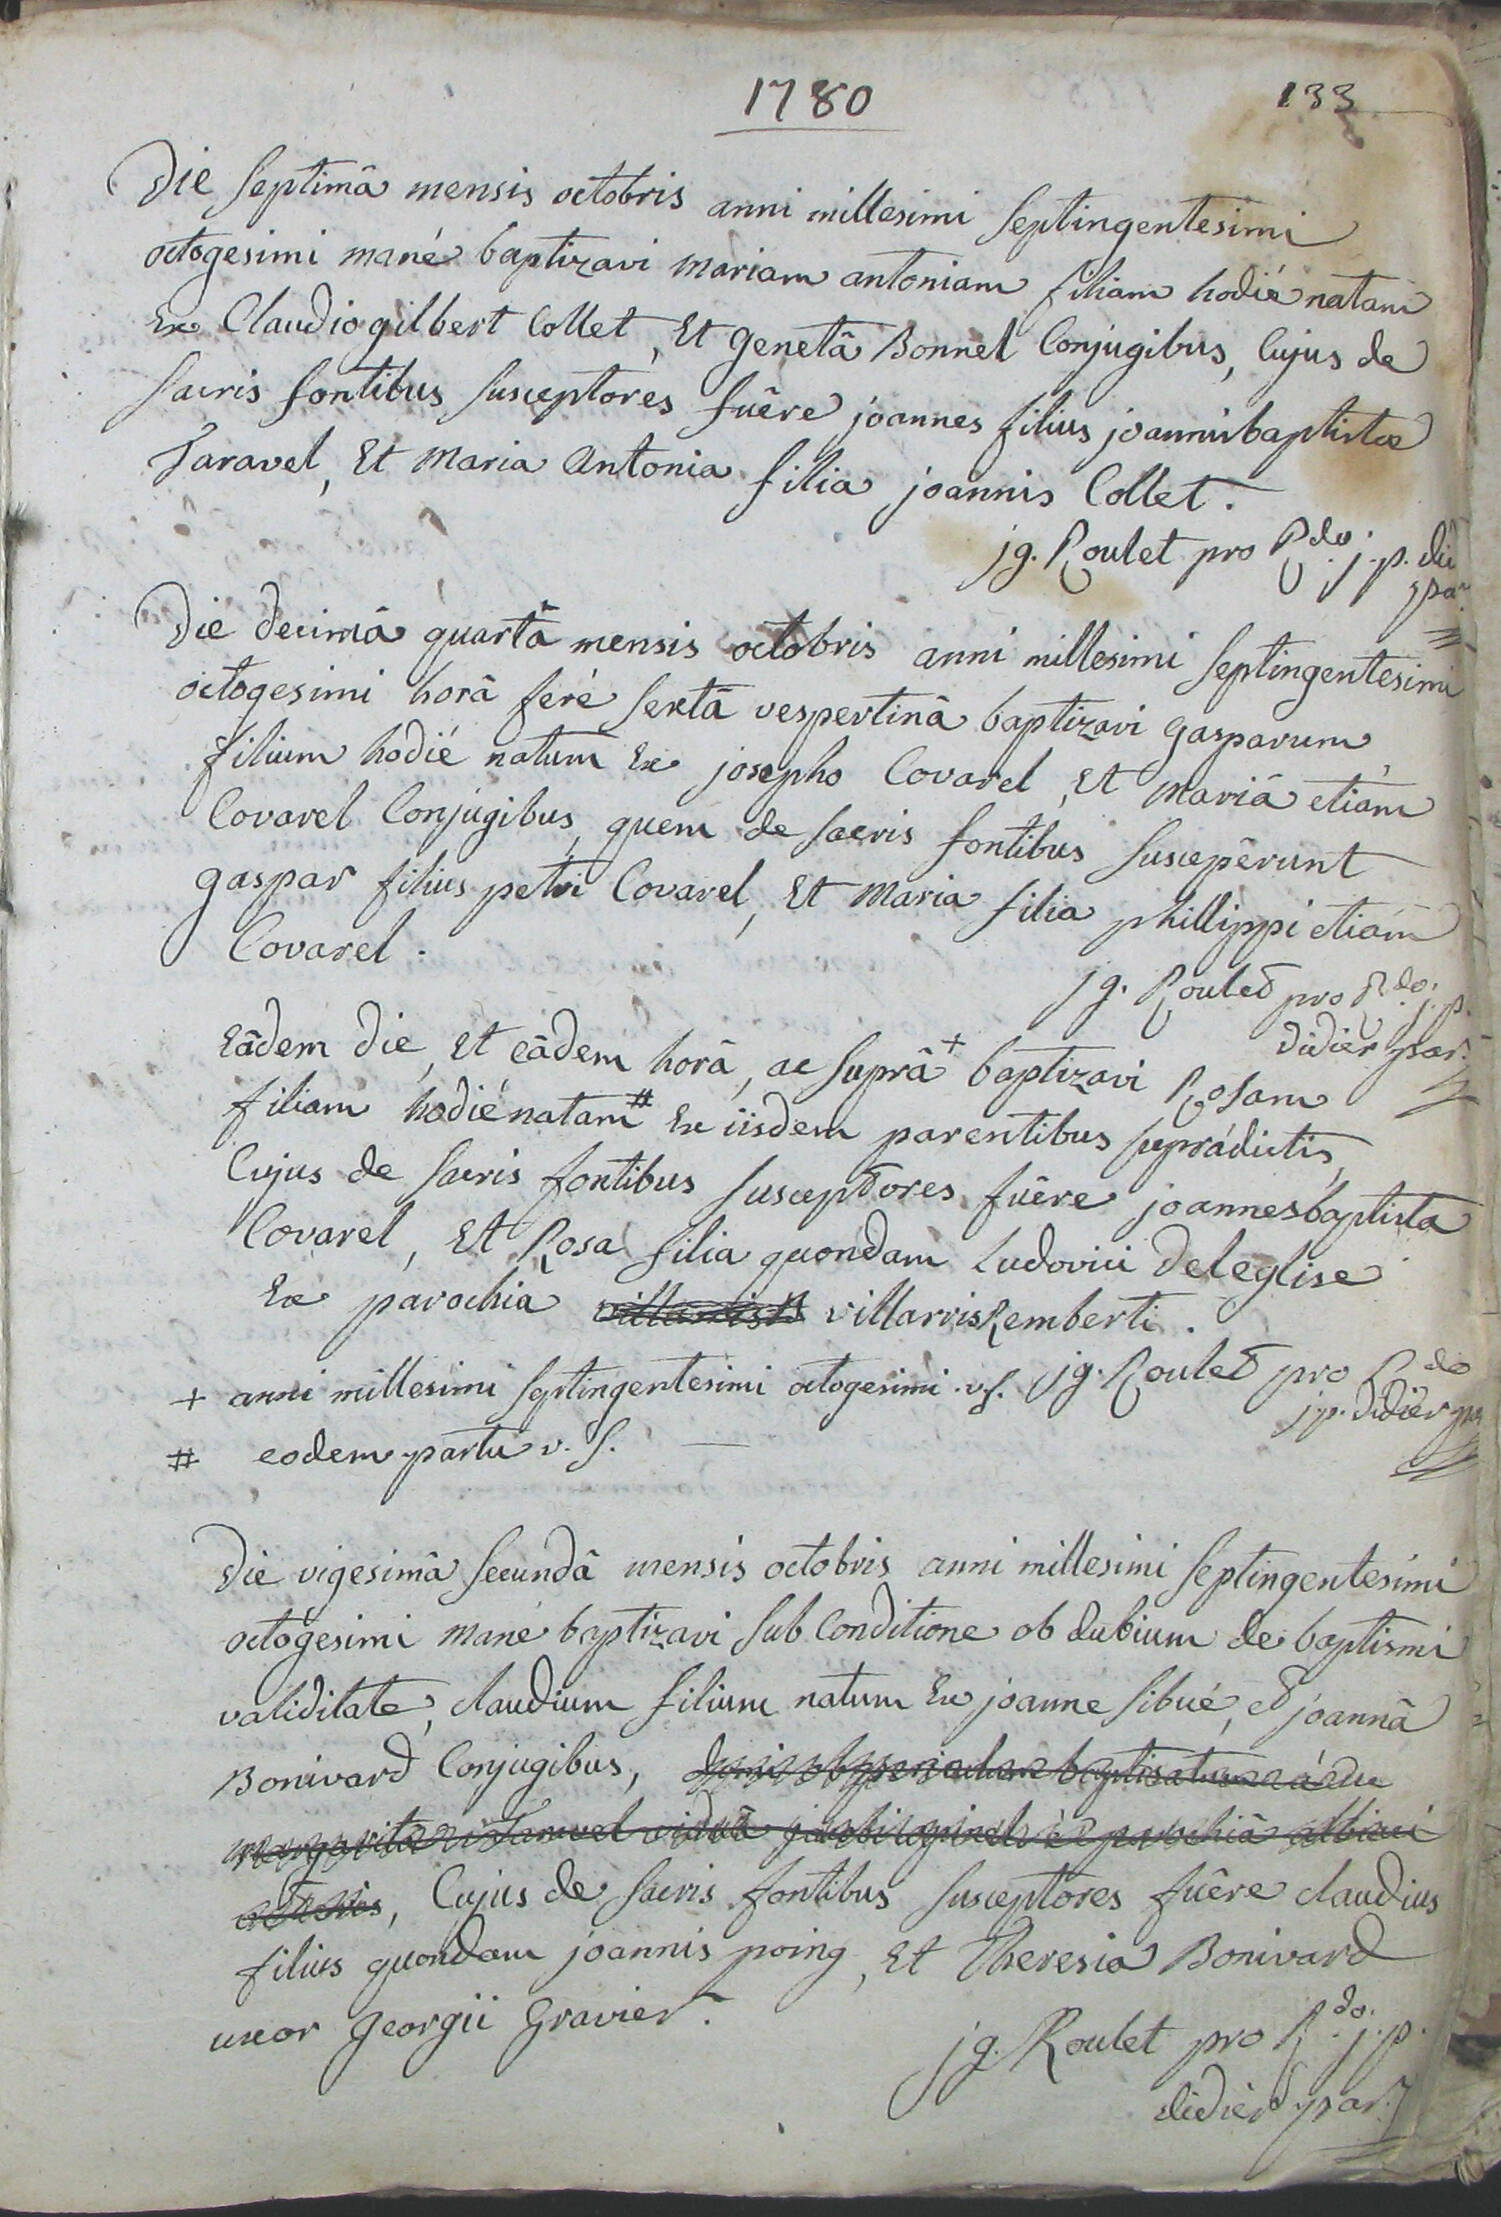 1780
133
Die septimâ mensis octobris anni millesimi septingentesimi
octogesimi mané baptizavi mariam antoniam filiam hodié natam
Ex Claudio gilbert Collet, Et genetâ Bonnel Conjugibus, Cujus de
sacris fontibus susceptores fuêre joannes filius joannisbaptistæ
Taravel, Et Maria Antonia filia joannis Collet.
jg. Roulet pro Rdo. j. p. di
par
Die decimâ quartâ mensis octobris anni millesimi septingentesimi
octogesimi horâ feré sextâ vespertinâ baptizavi gasparum
filium hodié natum Ex josepho Covarel, Et mariâ etiám
Covarel Conjugibus, quem de sacris fontibus suscepêrunt
gaspar filius petri Covarel, Et Maria filia phillippi etiám
Covarel.
jg. Roulet pro Rdo. j. p.
didier par.
Eâdem die, Et eâdem horâ, ac suprâ + baptizavi Rosam
filiam hodié natam # Ex iisdem parentibus suprádictis,
Cujus de sacris fontibus susceptores fuêre joannesbaptista
Covarel, Et Rosa filia quondam Ludovici Deleglise
Ex parochiâ villarisR villarrisRemberti.
+ anni millesimi septingentesimi octogesimi v.s. jg. Roulet pro Rdo
jp. didier par
# eodem partu v. s.
Die vigesimâ secundâ mensis octobris anni millesimi septingentesimi
octógesimi mané baptizavi sub Conditione ob dubium de baptismi
validitate, claudium filium natum Ex joanne sibué, et joannâ
Bonivard Conjugibus, domi ob periculum baptisatum
margarita Taravel viduâ jacobi parochiâ albiaci
, Cujus de sacris fontibus susceptores fuêre claudius
filius quondam joannis poing, Et Theresia Bonivard
uxor georgii Gravier.
jg. Roulet pro Rdo. j. p.
didier par.